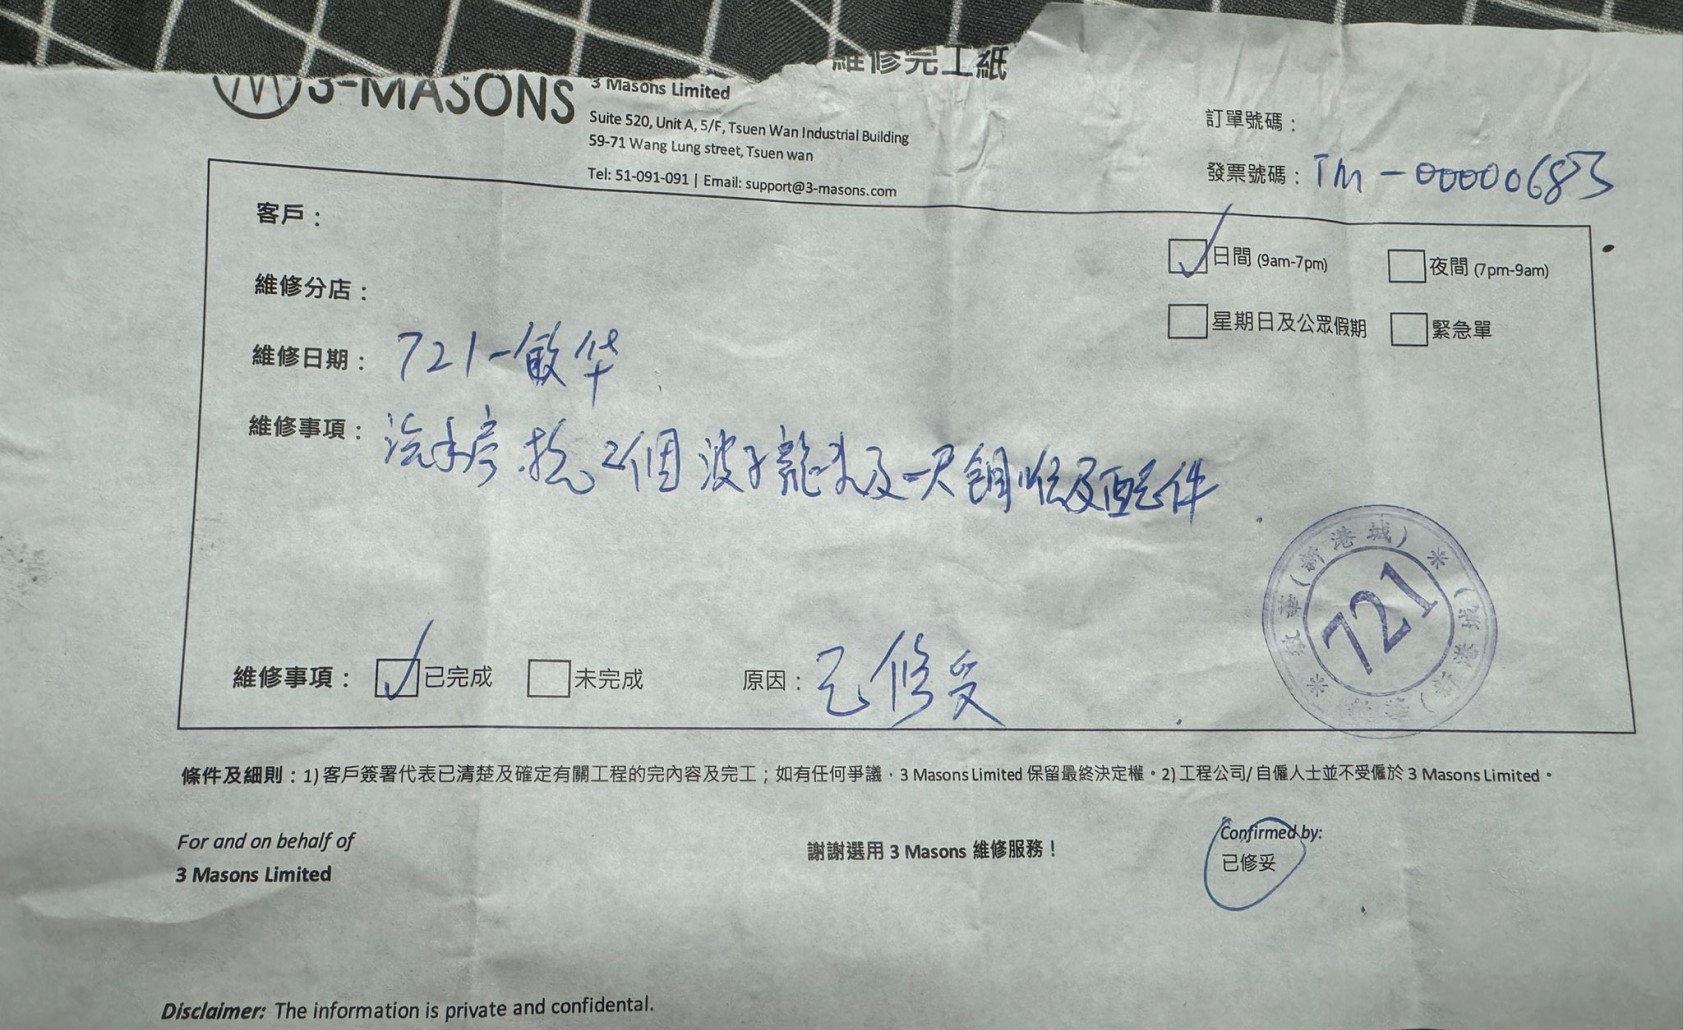 維修完工紙
3-MASONS
3 Masons Limited
Suite 520, Unit A, 5/F, Tsuen Wan Industrial Building
59-71 Wang Lung street, Tsuen wan
Tel: 51-091-091 | Email: support@3-masons.com
訂單號碼：
發票號碼：TM-00000683
客戶：
日間 (9am-7pm) 夜間 (7pm-9am)
維修分店：
星期日及公眾假期 緊急單
維修日期：721-敏华
維修事項：洗手房 換2個波子龍头及一尺銅喉及配件
敏華(新港城)
721
維修事項： 已完成 未完成 原因：已修妥
條件及細則：1) 客戶簽署代表已清楚及確定有關工程的完內容及完工；如有任何爭議，3 Masons Limited 保留最終決定權。2) 工程公司/ 自僱人士並不受僱於 3 Masons Limited。
For and on behalf of
3 Masons Limited
謝謝選用 3 Masons 維修服務！
Confirmed by:
已修妥
Disclaimer: The information is private and confidental.